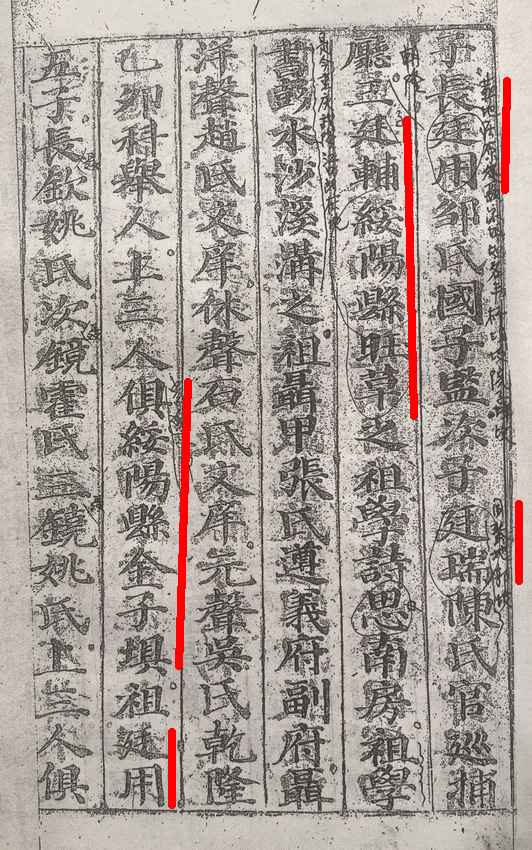 子長廷用鄒氏國子監次子廷瑞陳氏官巡捕
廳主廷輔綏陽縣旺草之祖學詩思南房祖學
書鸚水沙溪溝之祖聶甲張氏遵義府副府聶
洋聲趙氏文庠休聲石氏文庠元聲吳氏乾隆
乙卯科舉人上三人俱綏陽縣金子垻祖廷用
五子長欽姚氏次鏡霍氏三鐃姚氏上三人俱